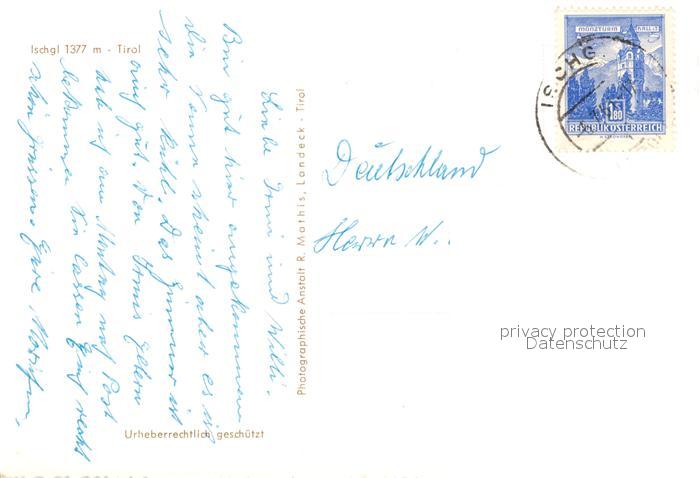 Ischgl 1377 m - Tirol
Liebe Irmi und Willi.
Bin gut hier angekommen
die Sonne scheint aber es ist
sehr kühl. Das Zimmer ist
ganz gut. Von Irmis Eltern
hab ich am Montag noch Post
bekommen Sie lassen Euch recht
schön grüssen. Eure
Urheberrechtlich geschützt
Photographische Anstalt R. Mathis, Landeck - Tirol
MÜNZTURM HALL i.T.
1.80
REPUBLIK ÖSTERREICH
ISCHG
Deutschland
Herrn W..
privacy protection
Datenschutz